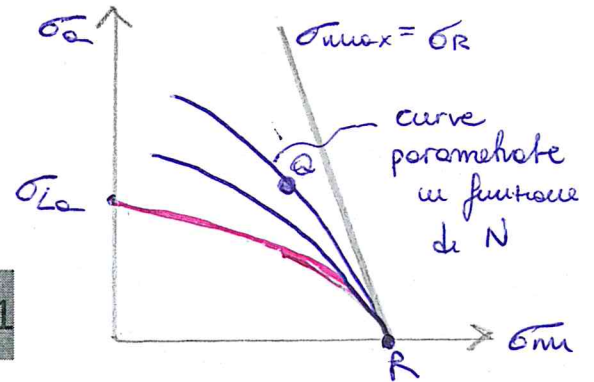 σa
σmax = σR
curve
parametrate
in funzione
di N
Q
σLa
1
σm
R